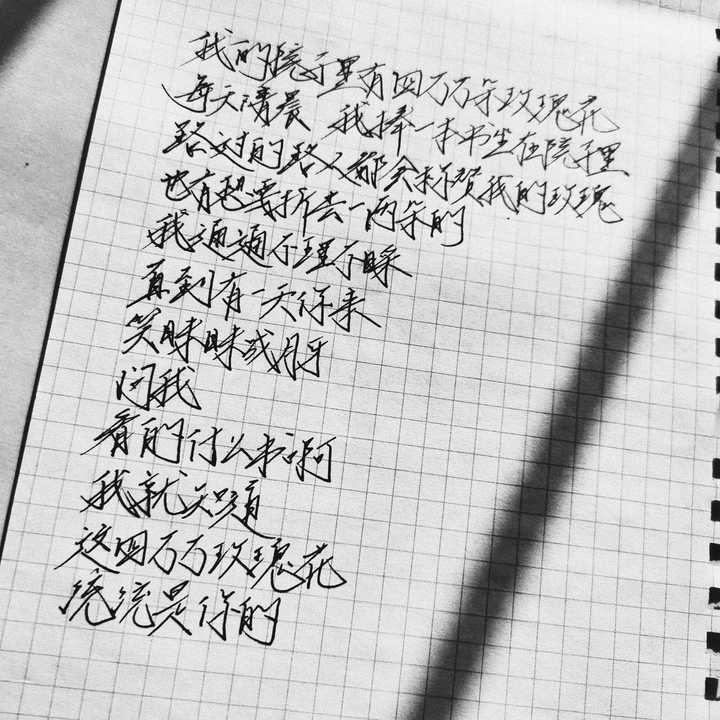 我的院子里有四万万朵玫瑰花
每天清晨 我捧一本书坐在院子里
路过的路人都会称赞我的玫瑰
也有想要折去一两朵的
我通通不理不睬
直到有一天你来
笑眯眯成月牙
问我
看的什么书啊
我就知道
这四万万玫瑰花
统统是你的